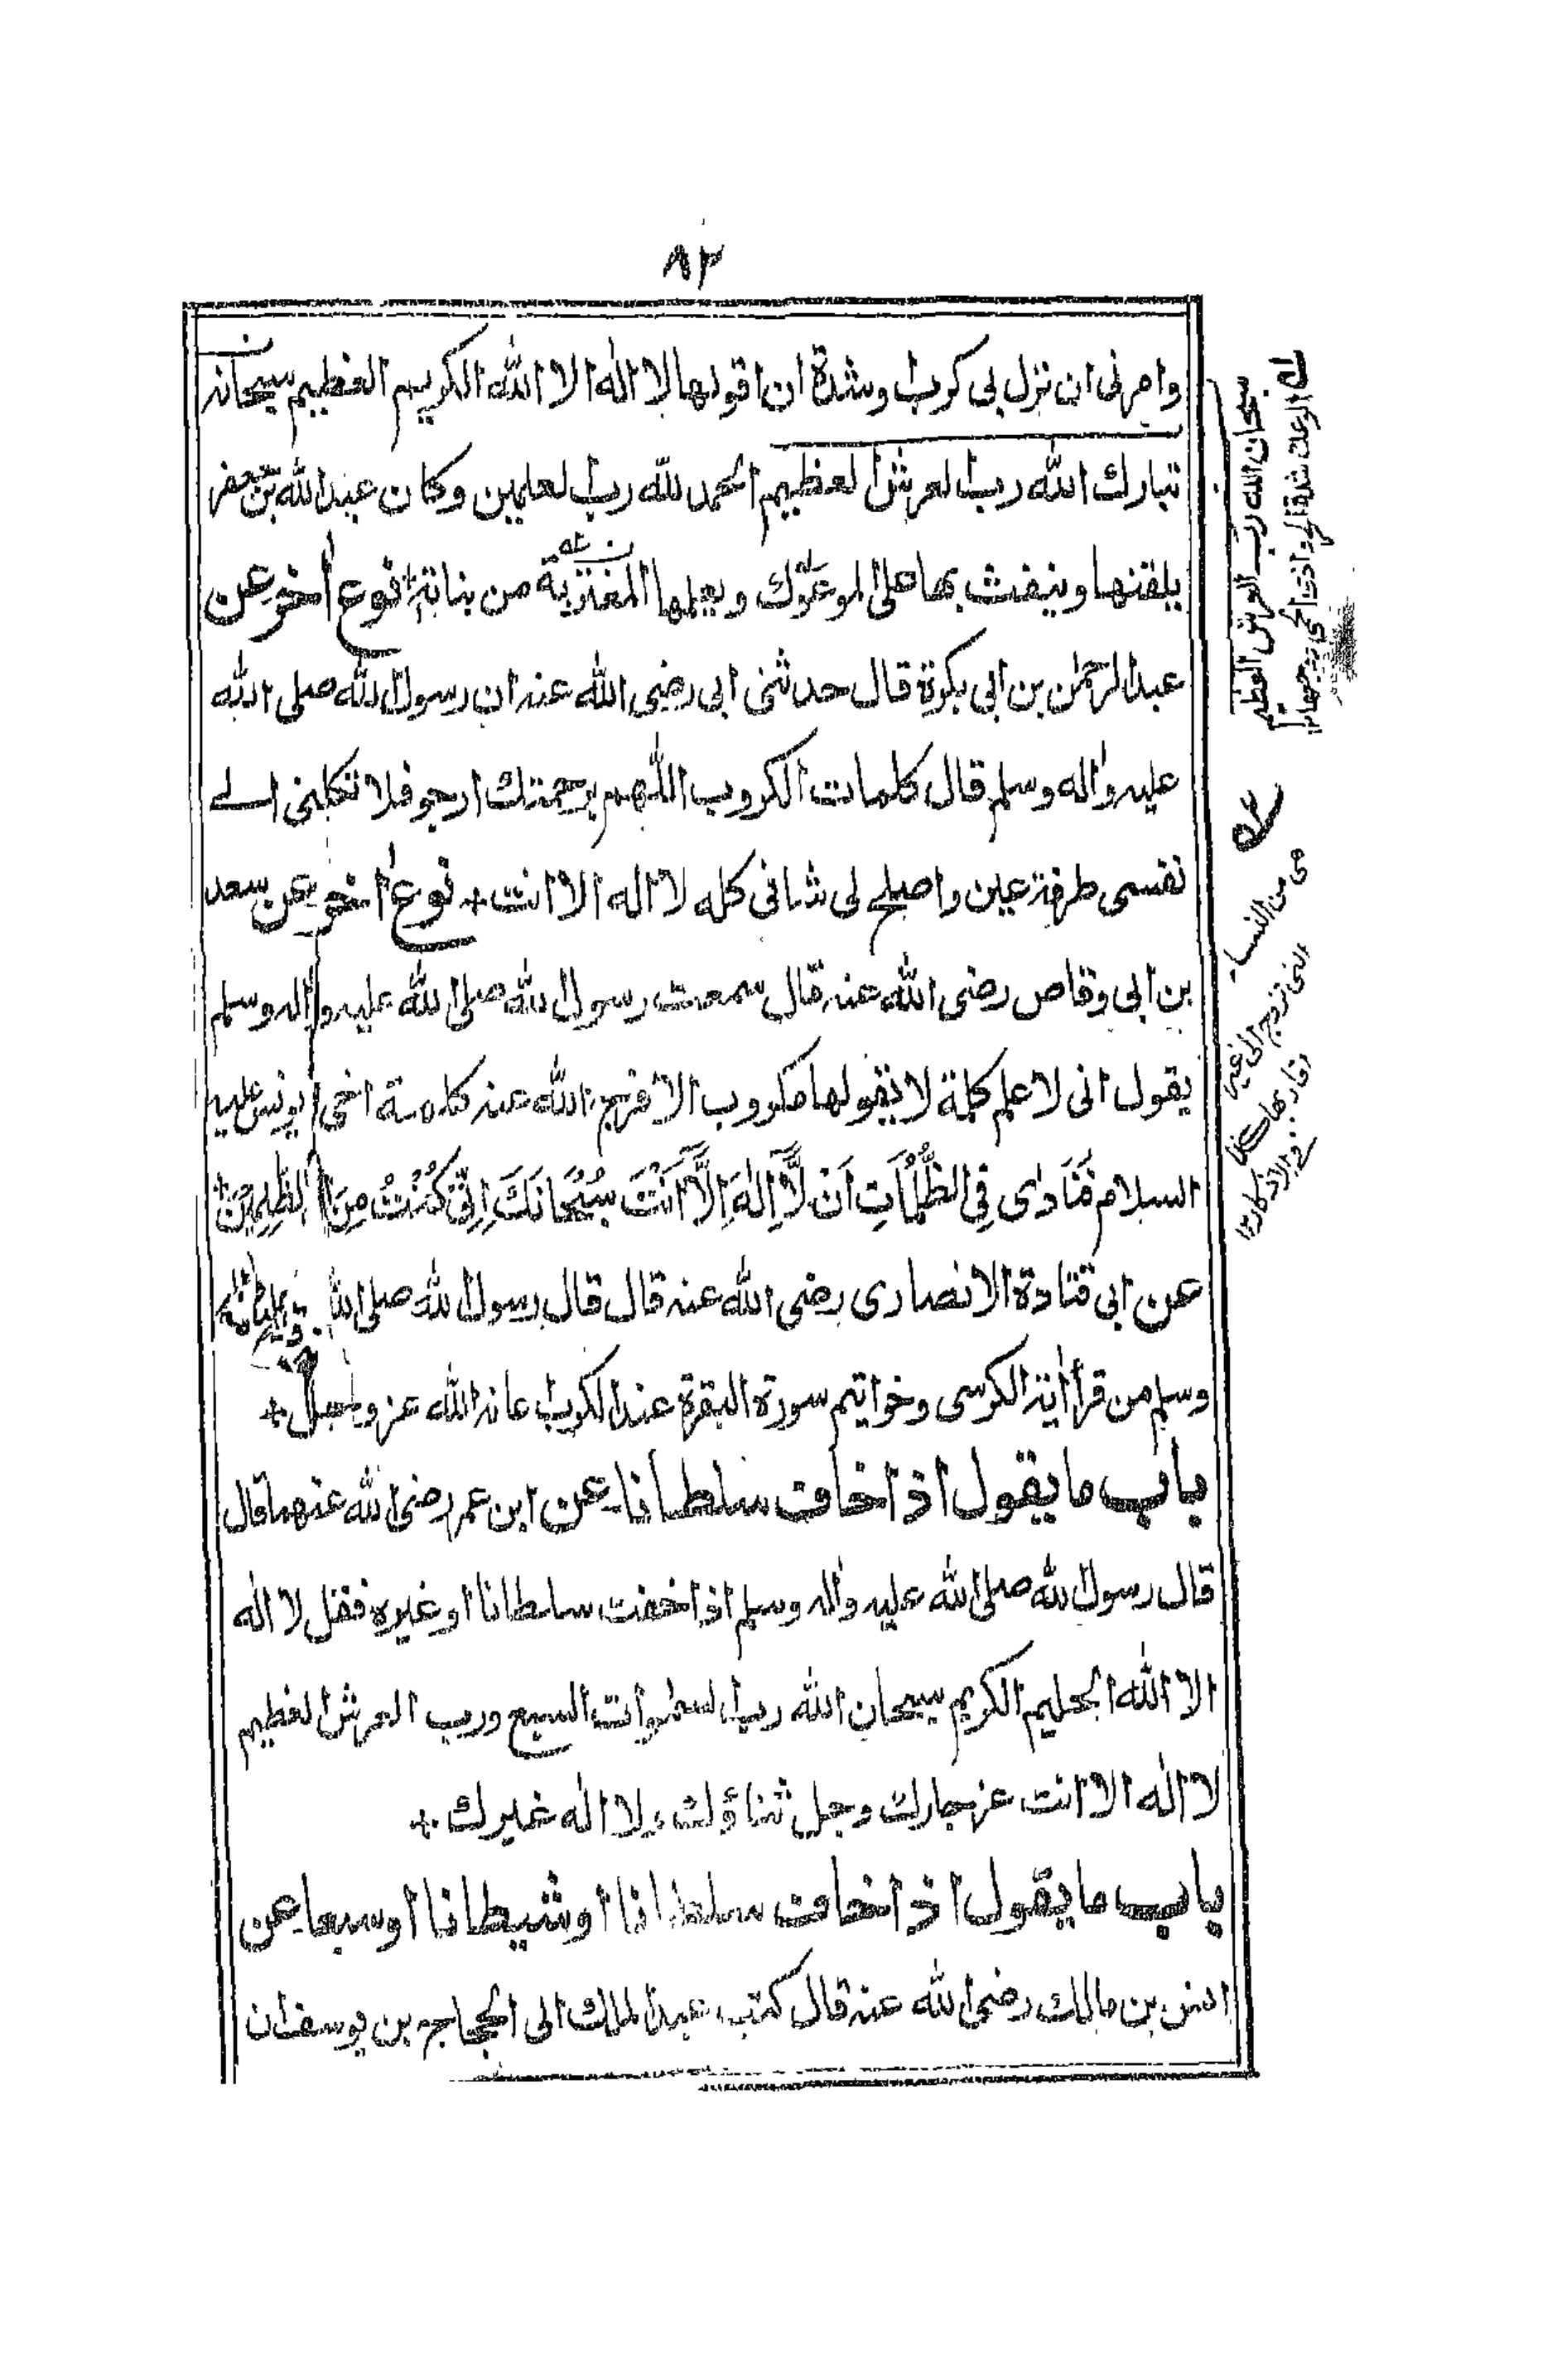 ٨٢
وامرنى ان نزل بى كرب وشدة ان اقولها لا اله الا الله الكريم العظيم سبحانه
تبارك الله رب العرش العظيم الحمد لله رب العلمين وكان عبد الله بن جعفر
يلقنها وينفث بها على الموعوك ويعلمها المغتربة من بناته نوع اخر عن
عبد الرحمن بن ابى بكرة قال حدثنى ابى رضى الله عنه ان رسول الله صلى الله
عليه واله وسلم قال كلمات الكروب اللهم برحمتك ارجو فلا تكلنى الے
نفسى طرفة عين واصلح لى شانى كله لا اله الا انت + نوع اخر عن سعد
بن ابى وقاص رضى الله عنه قال سمعت رسول الله صلى الله عليه واله وسلم
يقول انى لاعلم كلمة لا يقولها مكروب الا فرج الله عنه كلمة اخى يونس عليه
السلام فَنَادٰى فِى الظُّلُمَاتِ اَن لَّآ اِلٰهَ اِلَّآ اَنْتَ سُبْحَانَكَ اِنِّى كُنْتُ مِنَ الظّٰلِمِيْنَ
عن ابى قتادة الانصارى رضى الله عنه قال قال رسول الله صلى الله
وسلم من قرأ اية الكرسى وخواتيم سورة البقرة عند الكرب اعانه الله عز وجل +
باب ما يقول اذا خاف سلطانا عن ابن عمر رضى الله عنهما قال
قال رسول الله صلى الله عليه واله وسلم اذا خفت سلطانا او غيره فقل لا اله
الا الله الحليم الكريم سبحان الله رب السموات السبع ورب العرش العظيم
لا اله الا انت عز جارك وجل ثناؤك ولا اله غيرك +
باب ما يقول اذا خاف سلطانا او شيطانا او سبعا عن
انس بن مالك رضى الله عنه قال كتب عبد الملك الى الحجاج بن يوسف ان
سبحان الله رب العرش العظيم
الوعك شدة الحر واذى الحمى ووجعها
هى من النساء
التى تزوج الى غير
اقاربها